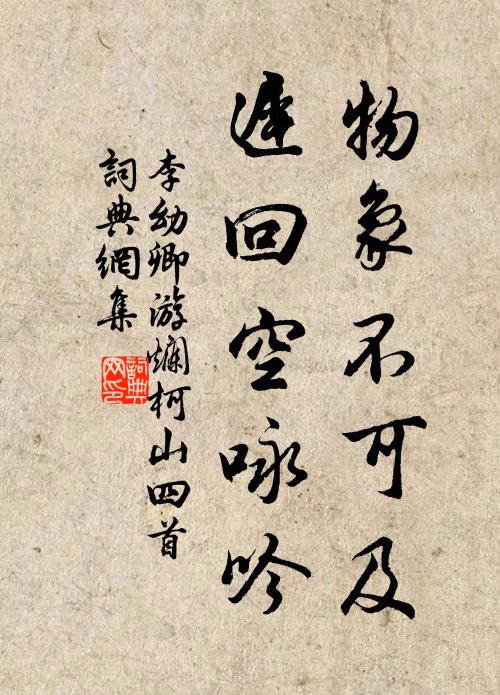 物象不可及
遲回空咏吟
李幼卿游爛柯山四首
詞典網集
詞典網印